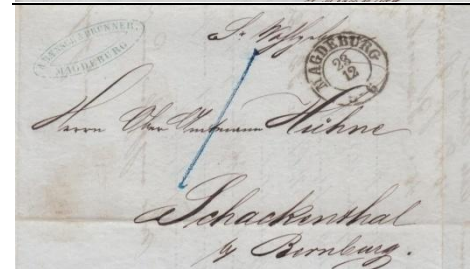 MAGDEBURG
MAGDEBURG
28
12
Herrn Ober Amtmann Kühne
Schackenthal
by Bernburg.